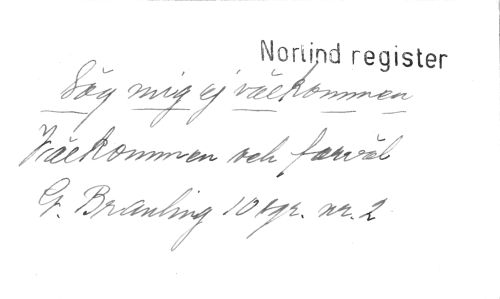 Norlind register
Säg mig ej välkommen
Välkommen och farväl
G. Brauling 10 sgr. nr. 2